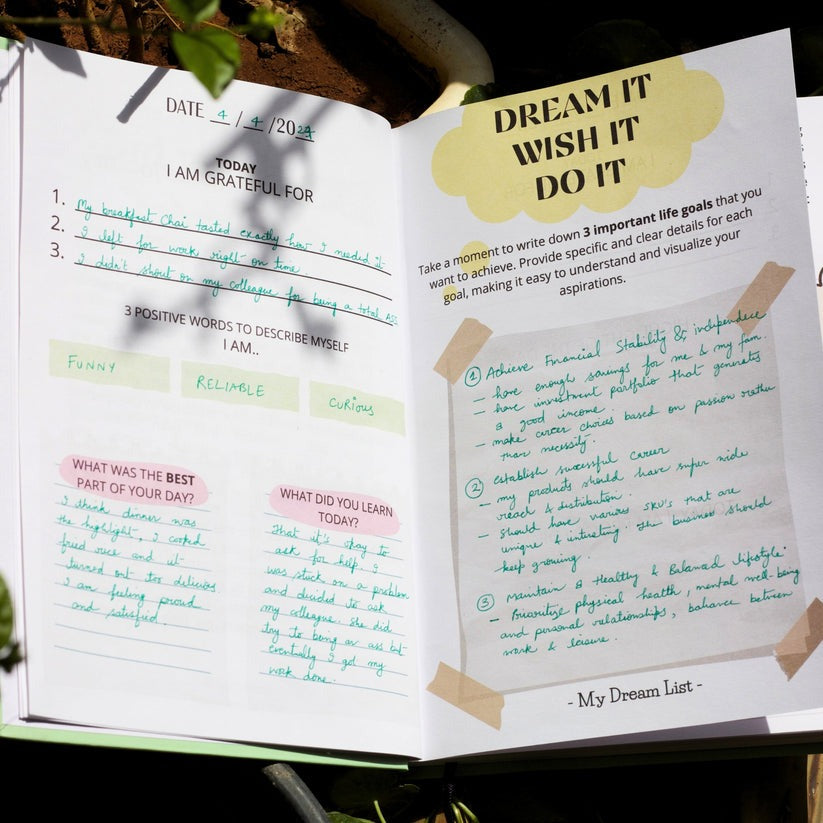 DATE 4 / 4 / 2024
TODAY
I AM GRATEFUL FOR
1. My breakfast Chai tasted exactly how I needed it
2. I left for work right on time
3. I didn't shout on my colleague for being a total ASS
3 POSITIVE WORDS TO DESCRIBE MYSELF
I AM..
FUNNY
RELIABLE
CURIOUS
WHAT WAS THE BEST
PART OF YOUR DAY?
I think dinner was
the highlight, I cooked
fried rice and it
turned out too delicious.
I am feeling proud
and satisfied.
WHAT DID YOU LEARN
TODAY?
That it's okay to
ask for help. I
was stuck on a problem
and decided to ask
my colleague. She did
try to being an ass but
eventually I got my
work done.
DREAM IT
WISH IT
DO IT
Take a moment to write down 3 important life goals that you
want to achieve. Provide specific and clear details for each
goal, making it easy to understand and visualize your
aspirations.
1 Achieve Financial Stability & independece
- have enough savings for me & my fam.
- have investment portfolio that generates
a good income.
- make career choices based on passion rather
than necessity.
2 establish successful career
- my products should have super wide
reach & distribution.
- Should have various SKU's that are
unique & intresting. The business should
keep growing.
3 Maintain a Healthy & Balanced lifestyle
- Prioritize physical health, mental well-being
and personal relationships, balance between
work & leisure.
- My Dream List -